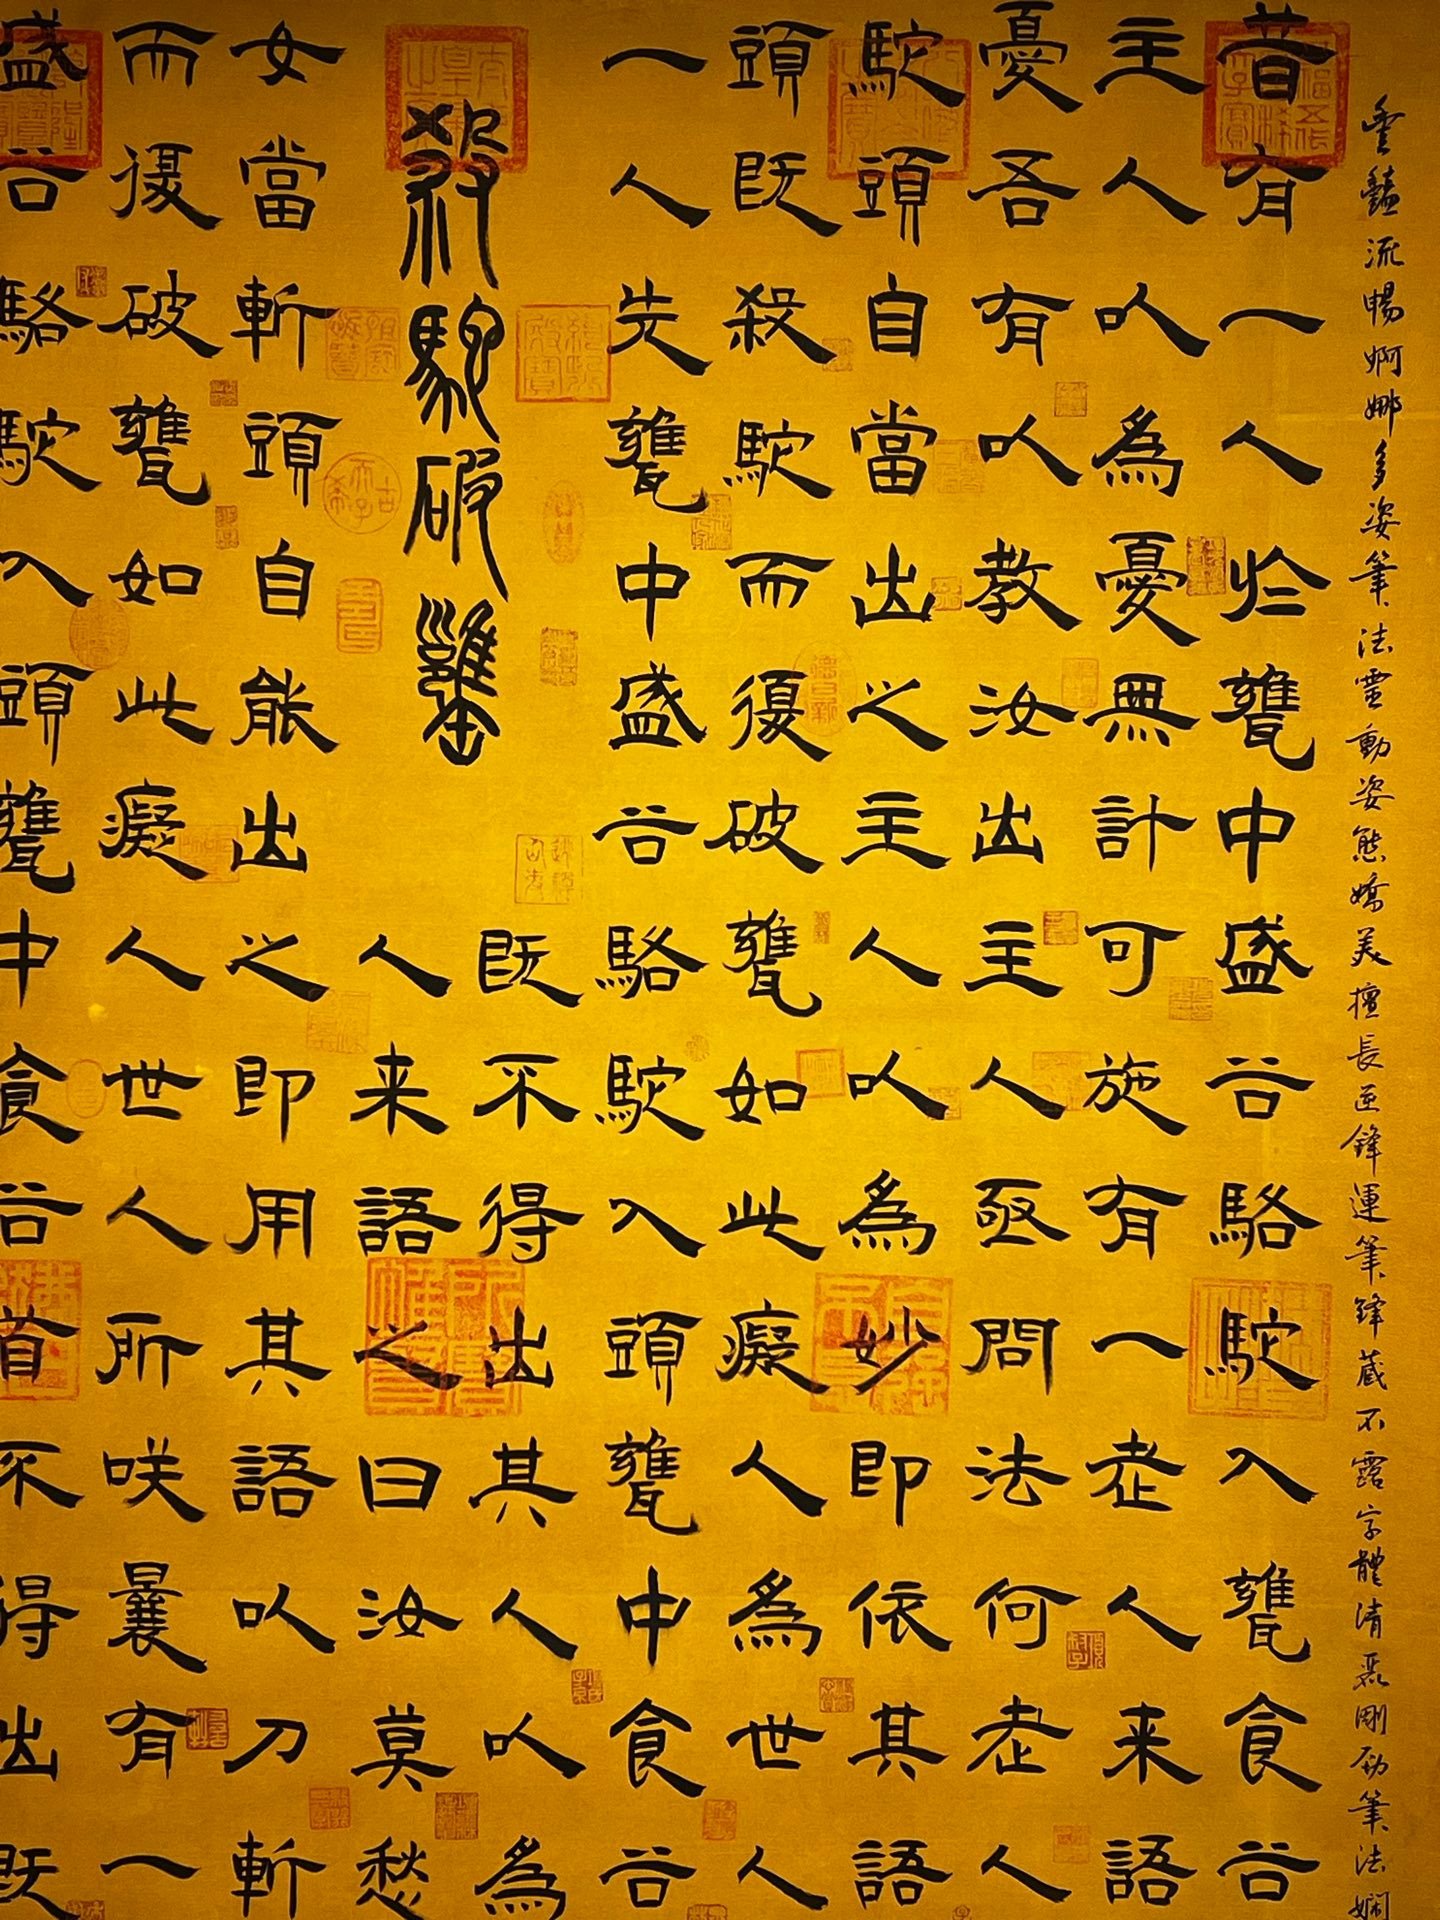 豐豔流暢婀娜多姿筆法靈動姿態嬌美擅長逆鋒運筆鋒蔵不露字體清麗剛劲筆法嫻
昔有一人於甕中盛谷駱駝入甕食谷
主人以為憂無計可施有一老人来語
憂吾有以教汝出主人亟問法何老人
駝頭自當出之主人以為妙即依其語
頭既殺駝而復破甕如此癡人為世人
一人先甕中盛谷駱駝入頭甕中食谷
殺駝破甕
既不得出其人以為
人来語之曰汝莫愁
女當斬頭自能出之即用其語以刀斬
而復破甕如此癡人世人所咲曩有一
盛谷駱駝入頭甕中食谷首不得出既